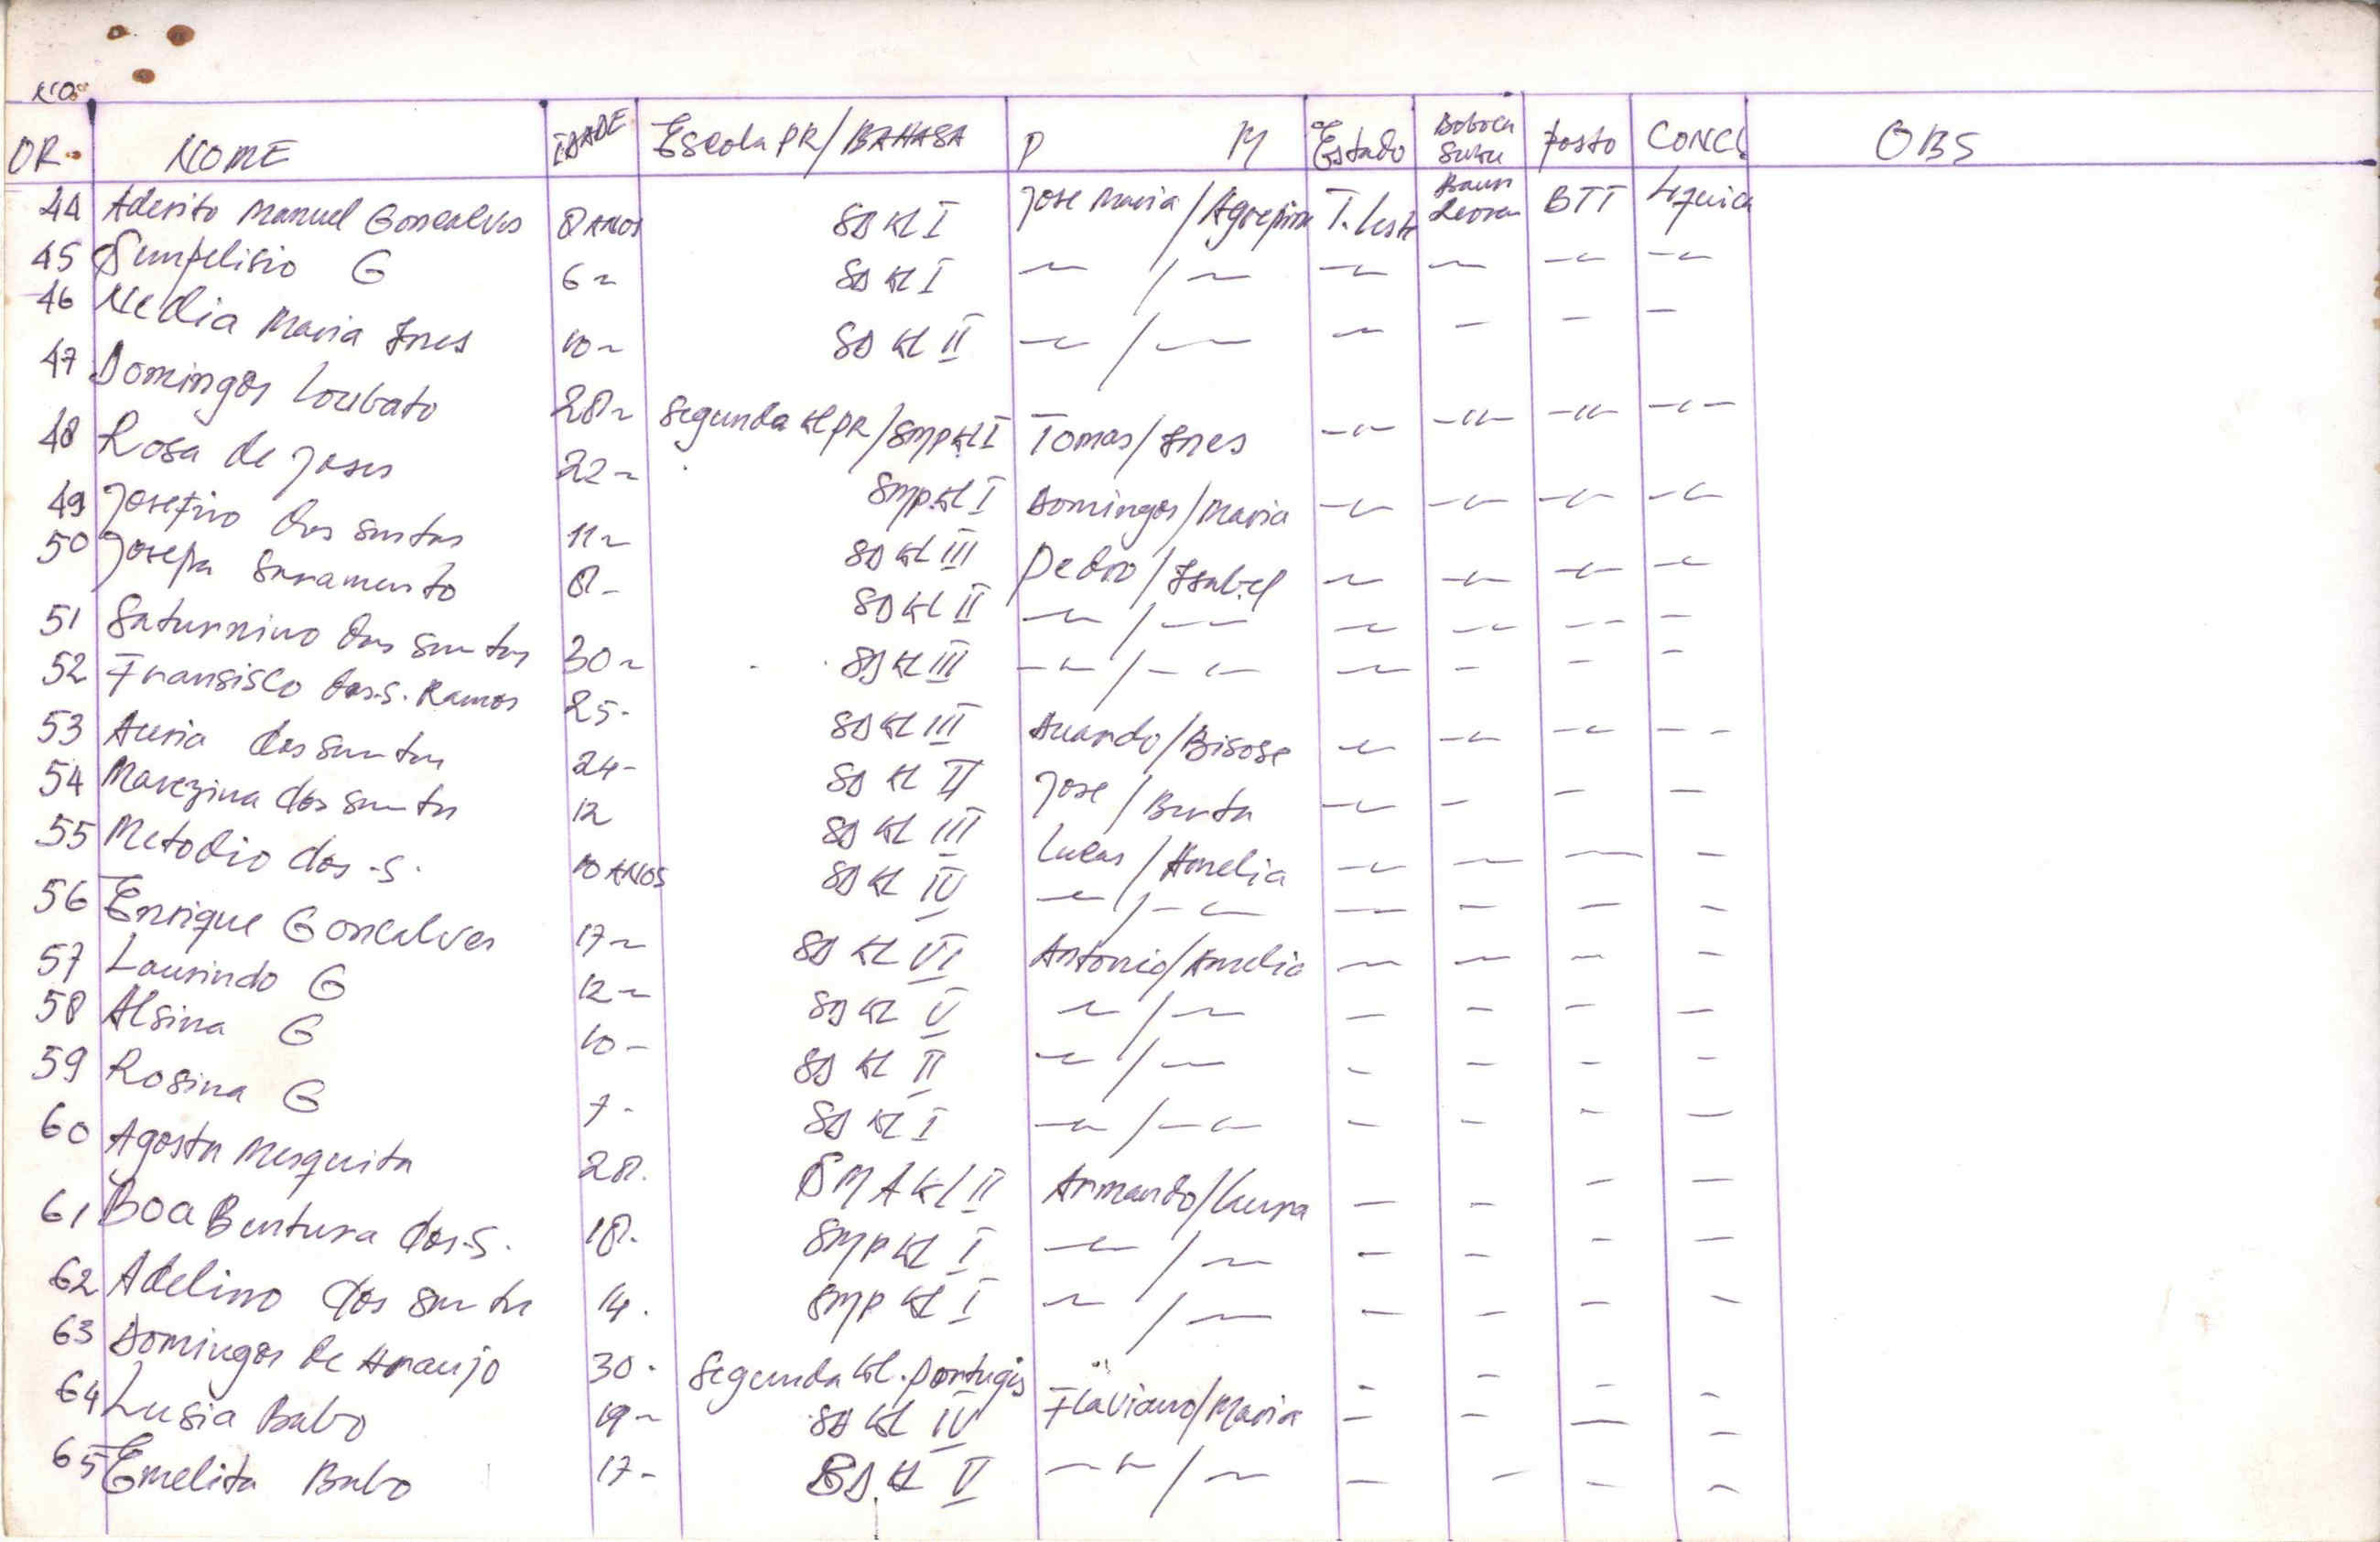 NO:
OR. NOME IDADE Escola PR/BAHASA P M Estado Suku Posto CONC. OBS
44 Aderito Manuel Goncalves 8 ANOS SD KL I Jose Maria / Agrepina T. Leste BTT
45 Simpelisio G 6 ~ SD KL I ~ / ~ ~ ~ ~ ~
46 Nedia Maria Ines 10 ~ SD KL II ~ / ~ ~ - - -
47 Domingos Loubato 28 ~ Segunda KL PR/SMP KL I Tomas/Ines -"- -"- -"- -"-
48 Rosa de Jesus 22 ~ SMP KL I Domingos/Maria -"- -"- -"- -"-
49 Josefino dos santos 11 ~ SD KL III Pedro/Isabel ~ -"- -"- -"-
50 Josepa Saramento 8 - SD KL II ~ / -- ~ -- -- -
51 Saturnino dos santos 30 ~ SD KL III -"- / -"- ~ - - -
52 Fransisco dos.S. Ramos 25 - SD KL III Auardo/Bisose ~ -"- -"- --
53 Auria dos santos 24 - SD KL II Jose / Berta ~ - - -
54 Marezina dos santos 12 SD KL III Lucas / Amelia ~ ~ - -
55 Metodio dos .S. 10 ANOS SD KL IV ~ / -"- - - - -
56 Enrique Goncalves 17 ~ SD KL VI Antonio/Amelia ~ ~ - -
57 Laurindo G 12 ~ SD KL V ~ / ~ - - - -
58 Alsina G 10 - SD KL II ~ / ~ - - - -
59 Rosina G 7 - SD KL I -"- / -"- - - - -
60 Agosta Mesquita 28. SMA KL II Armando/Laura - - - -
61 Boa Bentura dos.S. 18. SMP KL I ~ / ~ - - - -
62 Adelino dos santos 14. SMP KL I ~ / ~ - - - -
63 Domingos de Araujo 30. Segunda KL. Portugis - - - -
64 Lusia Babo 19 ~ SD KL IV Flaviano/Maria - - - -
65 Emelita Babo 17 - SD KL V -"- / ~ - - - -